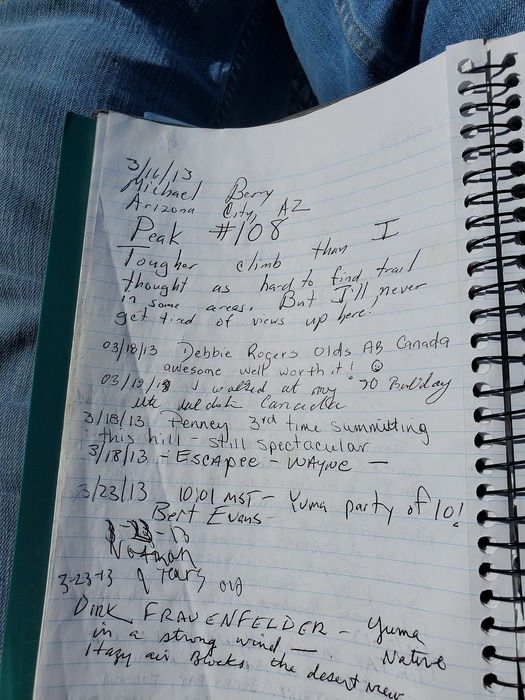 3/16/13
Michael Berry
Arizona City, AZ
Peak #108
Tougher climb than I
thought as hard to find trail
in some areas. But I'll never
get tired of views up here.
03/18/13 Debbie Rogers Olds AB Canada
awesome well worth it! ☺
03/18/13 I walked at my 70
3/18/13 Penney 3rd time summitting
this hill - still spectacular
3/18/13 - Escapee - Wayne —
3/23/13 10:01 MST - Yuma party of 10!
Bert Evans
-13
Norman
3-23-13 9 Years old
Dirk Frauenfelder - Yuma
in a strong wind — Native
Hazy air blocks the desert view